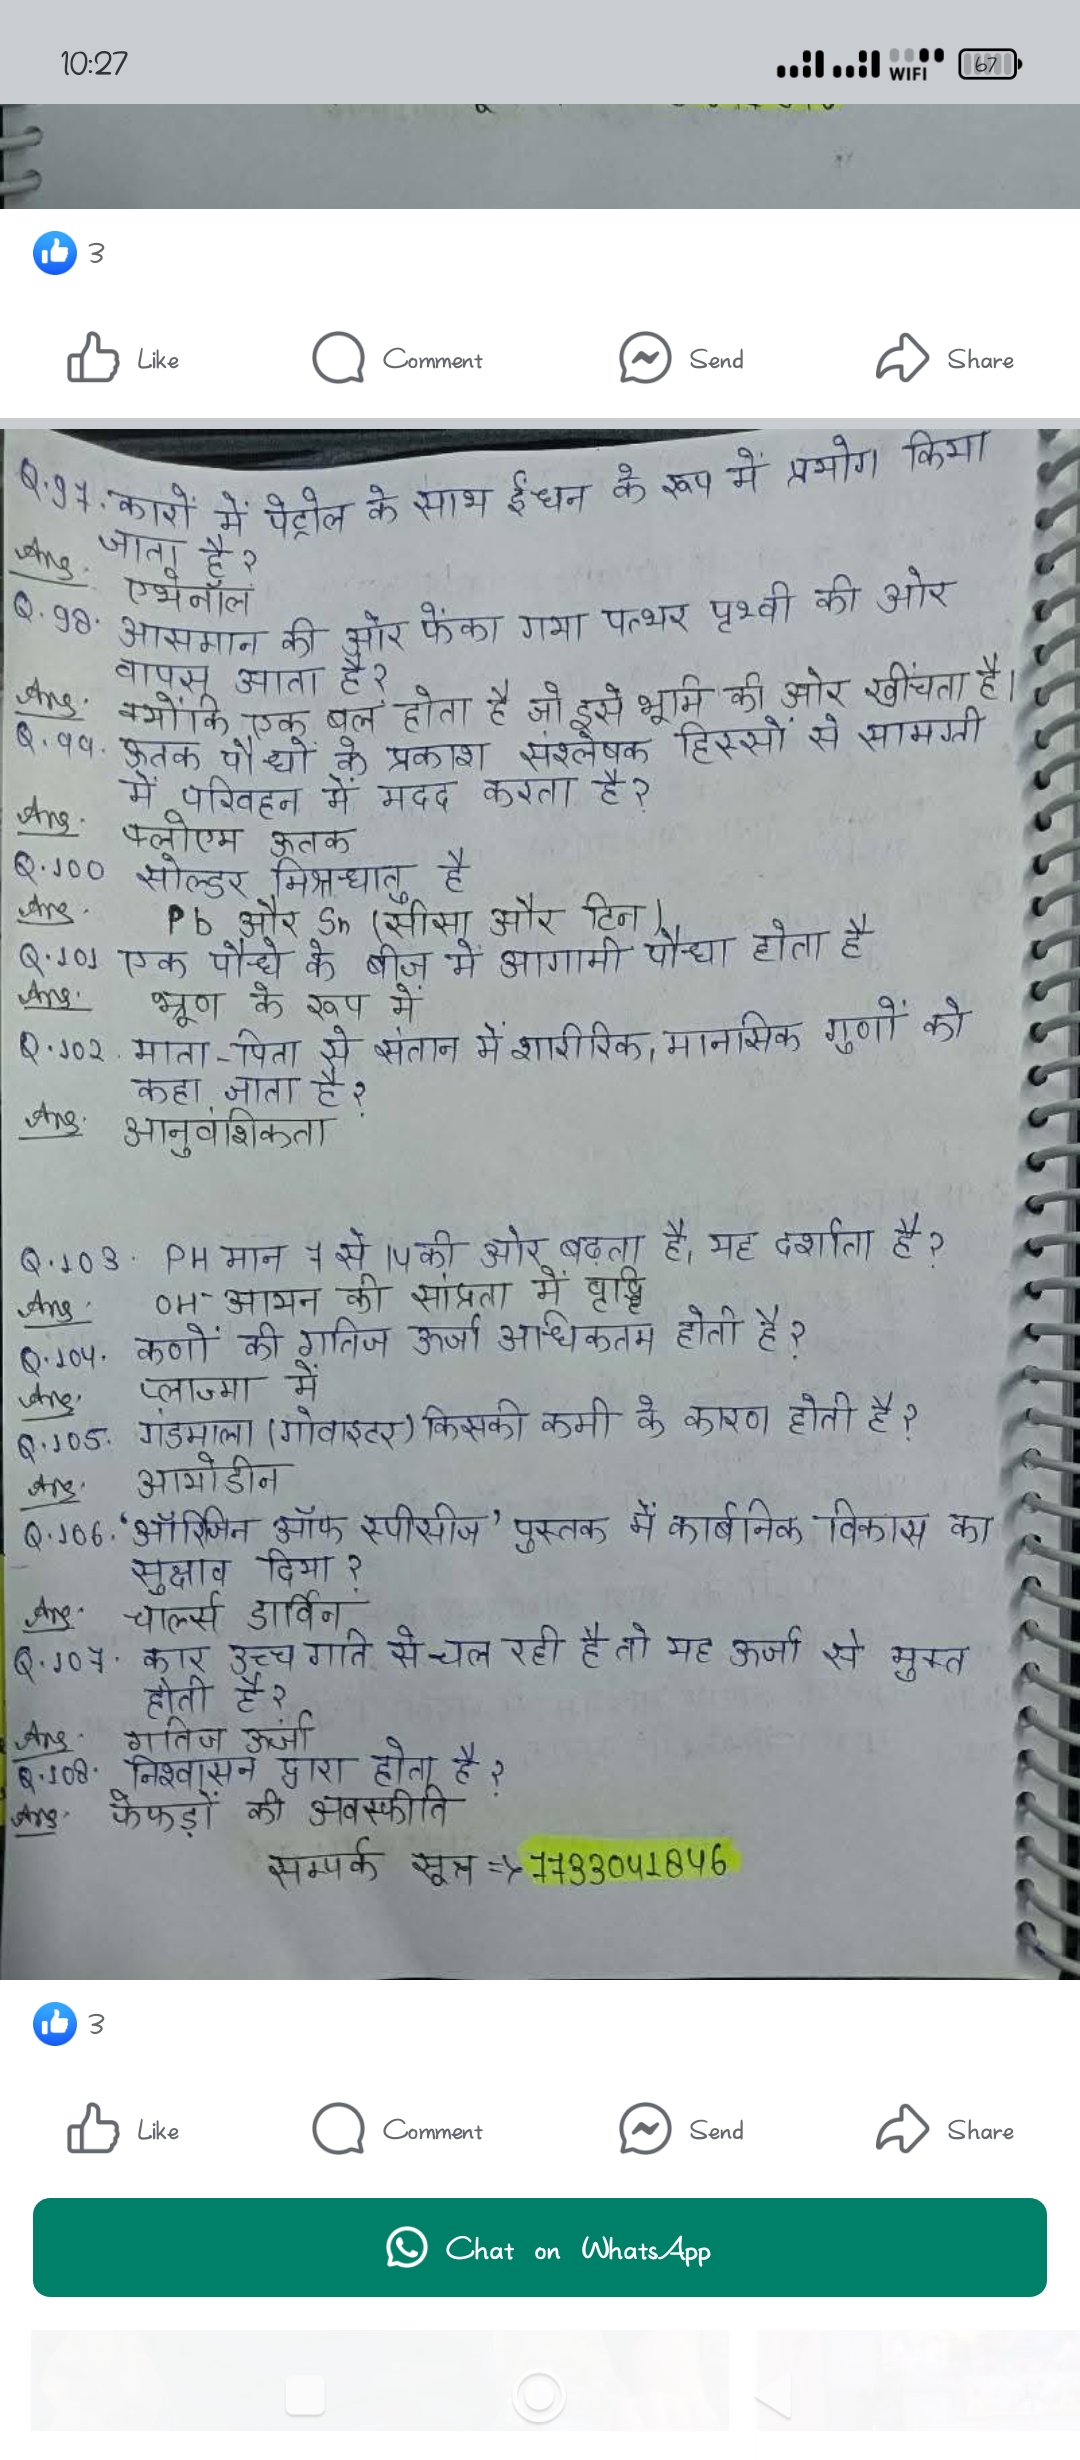 10:27
WIFI
67
3
Like Comment Send Share
Q.97. कारों में पेट्रोल के साथ ईंधन के रूप में प्रयोग किया
जाता है?
Ans. एथेनॉल
Q.98. आसमान की ओर फेंका गया पत्थर पृथ्वी की ओर
वापस आता है?
Ans. क्योंकि एक बल होता है जो इसे भूमि की ओर खींचता है।
Q.99. ऊतक पौधों के प्रकाश संश्लेषक हिस्सों से सामग्री
में परिवहन में मदद करता है?
Ans. फ्लोएम ऊतक
Q.100 सोल्डर मिश्रधातु है
Ans. Pb और Sn (सीसा और टिन)
Q.101 एक पौधे के बीज में आगामी पौधा होता है
Ans. भ्रूण के रूप में
Q.102. माता-पिता से संतान में शारीरिक, मानसिक गुणों को
कहा जाता है?
Ans. आनुवंशिकता
Q.103. PH मान 7 से 14 की ओर बढ़ता है, यह दर्शाता है?
Ans. OH⁻ आयन की सांद्रता में वृद्धि
Q.104. कणों की गतिज ऊर्जा अधिकतम होती है?
Ans. प्लाज्मा में
Q.105. गंडमाला (गोवाइटर) किसकी कमी के कारण होती है?
Ans. आयोडीन
Q.106. 'ऑरिजिन ऑफ स्पीसीज' पुस्तक में कार्बनिक विकास का
सुझाव दिया?
Ans. चार्ल्स डार्विन
Q.107. कार उच्च गति से चल रही है तो यह ऊर्जा से युक्त
होती है?
Ans. गतिज ऊर्जा
Q.108. निश्वासन द्वारा होता है?
Ans. फेफड़ों की अवस्फीति
सम्पर्क सूत्र => 7733041846
3
Like Comment Send Share
Chat on WhatsApp